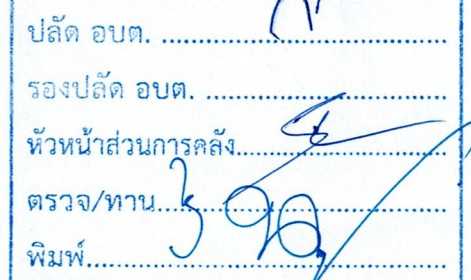 ปลัด อบต. ........................................
รองปลัด อบต. ..................................
หัวหน้าส่วนการคลัง............................
ตรวจ/ทาน........................................
พิมพ์................................................